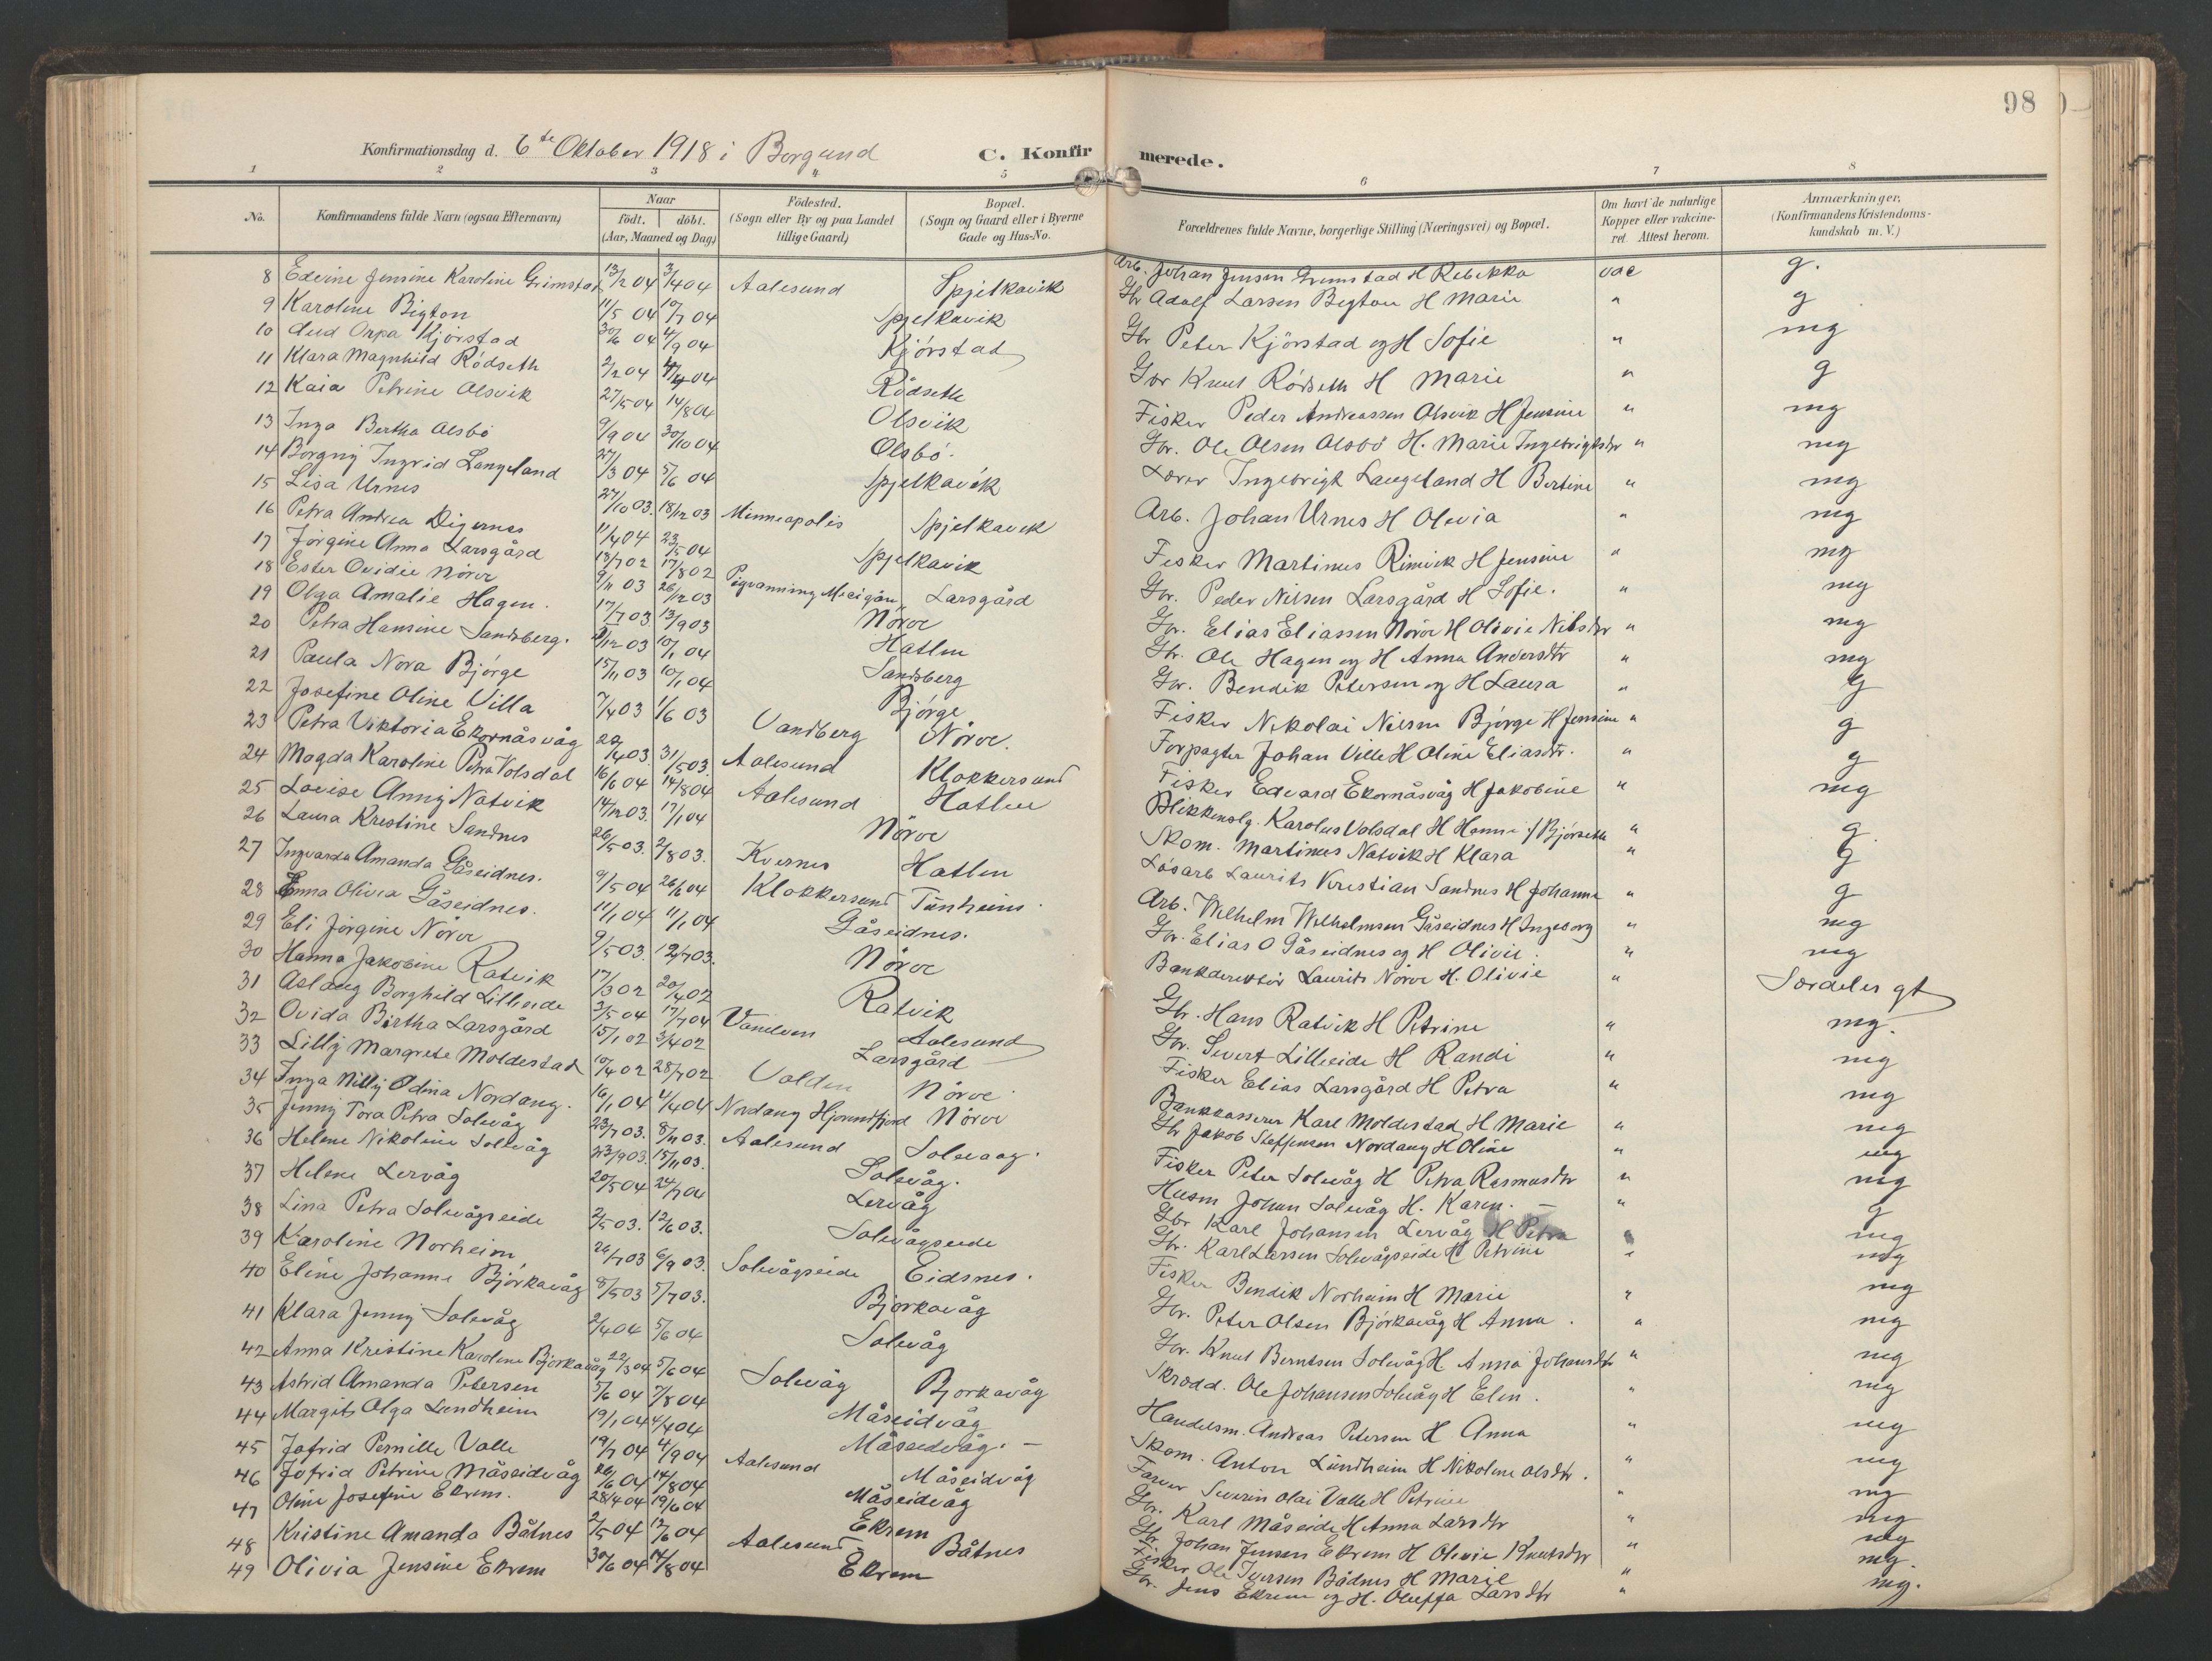 98
Konfirmationsdag d. 6te Oktober 1918 i Borgund C. Konfirmerede.
1 2 3 4 5 6 7 8
No. Konfirmandens fulde Navn (ogsaa Efternavn) Naar født. døbt. (Aar, Maaned og Dag) Fødested. (Sogn eller By og paa Landet tillige Gaard) Bopæl. (Sogn og Gaard eller i Byerne Gade og Hus-No. Forældrenes fulde Navne, borgerlige Stilling (Næringsvei) og Bopæl. Om havt de naturlige Kopper eller vakcineret. Attest herom. Anmærkninger, (Konfirmandens Kristendomskundskab m. V.)
8 Edvine Jensine Karoline Grimstad 13/2 04 3/4 04 Aalesund Spjelkavik Arb. Johan Jensen Grimstad H Rebekka vac g.
9 Karoline Bigton 11/5 04 10/7 04 Spjelkavik Gbr Adolf Larsen Bigton H Marie " g
10 Kjørstad 30/6 04 4/9 04 Kjørstad Gbr Peter Kjørstad og H Sofie " mg
11 Klara Magnhild Rødseth 2/2 04 4/4 04 Rødseth Gbr Knut Rødseth H Marie " g
12 Kaia Petrine Olsvik 27/5 04 14/8 04 Olsvik Fisker Peder Andreassen Olsvik H Jensine " mg
13 Inga Bertha Olsbø 9/9 04 30/10 04 Olsbø. Gbr. Ole Olsen Olsbø H. Marie Ingebrigtsdtr " mg
14 Borgny Ingrid Langeland 27/3 04 5/6 04 Spjelkavik Lærer Ingebrigt Langeland H Bertine " mg
15 Lisa Urnes 27/10 03. 18/12 03 Minneapolis Spjelkavik Arb. Johan Urnes H Olevia " mg
16 Petra Andrea Digernes 11/4 04 23/5 04 Spjelkavik Fisker Martinus Rimvik H Jensine " mg
17 Jørgine Anna Larsgård 18/7 02 17/8 02 Larsgård Gbr. Peder Nilsen Larsgård H Sofie. " mg
18 Ester Ovidie Nörve 9/11 03 26/12 03 Nörve Gbr. Elias Eliassen Nörve H Olivie Nilsdtr " mg
19 Olga Amalie Hagen. 17/7 03 13/9 03 Hatlen Gbr. Ole Hagen og H Anna Andersdtr " mg
20 Petra Hansine Sandsberg. 10/1 04 Sandsberg Gbr. Bendik Petersen og H Laura " g
21 Paula Nora Bjørge 15/11 03 10/1 04 Bjørge Fisker Nikolai Nilsen Bjørge H Jensine " g
22 Josefine Oline Villa 7/4 03 1/6 03 Vandberg Nörve. Forpagter Johan Villa H Oline Eliasdtr. " g
23 Petra Viktoria Ekornåsvåg 31/5 03. Aalesund Klokkersund Fisker Edvard Ekornåsvåg H Jakobine " mg
24 Magda Karoline Petra Volsdal 16/6 04 14/8 04 Aalesund Hatlen Blikkenslg. Karolus Volsdal H Hanna f/ Bjørseth " g
25 Lovise Anny Natvik 14/12 03. 17/1 04 Nörve Skom. Martinus Natvik H Klara " g
26 Laura Kristine Sandnes 26/5 03. 2/8 03. Kvernes Hatlen Løsarb Laurits Kristian Sandnes H Johanna " g
27 Ingvarda Amanda Gåseidnes. 9/5 04 26/6 04 Klokkersund Tunheim. Arb. Wilhelm Wilhelmsen Gåseidnes H Ingeborg " mg
28 Enna Olivia Gåseidnes. 11/1 04 11/1 04 Gåseidnes. Gbr. Elias O Gåseidnes og H Olivie. " mg
29 Eli Jørgine Nörve 9/5 03. 12/7 03. Nörve Bankdirektör Laurits Nörve H. Olivie " Særdeles gt
30 Hanna Jakobine Ratvik 17/3 02 20/4 02 Ratvik Gbr. Hans Ratvik H Petrine " mg.
31 Aslaug Borghild Lilleeide 3/5 04 17/7 04 Vanelven Aalesund Gbr. Sivert Lilleeide H Randi " mg
32 Ovida Birtha Larsgård 15/1 02 3/4 02 Larsgård Fisker Elias Larsgård H Petra " mg
33 Lilly Margrete Moldestad 10/4 02 28/7 02 Volden Nörve Bankkasserer Karl Moldestad H Marie " mg
34 Inga Nilly Odina Nordang. 16/1 04 4/4 04 Nordang Hjørundfjord Nörve Gbr Jakob Steffensen Nordang H Oline " mg
35 Jenny Tora Petra Solevåg 23/7 03. 8/11 03. Aalesund Solevaag. Fisker Peter Solevåg H Petra Rasmusdtr " mg
36 Helene Nikoline Solevåg 23/9 03. 15/11 03. Solevåg. Husm Johan Solevåg H. Karen. — " g
37 Helene Lervåg 20/5 04 24/7 04 Lervåg Gbr Karl Johansen Lervåg H Petra " mg
38 Lina Petra Solevågseide 2/5 03. 12/6 03. Solevågseide Gbr. Karl Larsen Solevågseide H Petrine " mg
39 Karoline Norheim 24/7 03 6/9 03. Solevågseide Eidsnes. Fisker Bendik Norheim H Marie " mg
40 Eline Johanne Bjørkavåg 8/5 03 5/7 03. Bjørkavåg Gbr. Peter Olsen Bjørkavåg H Anna. " mg
41 Klara Jenny Solevåg 2/4 04 5/6 04 Solevåg Gbr. Knut Berntsen Solevåg H Anna Johansdtr " mg
42 Anna Kristine Karoline Bjørkavåg 22/3 04 5/6 04 Solevåg Bjørkavåg Skrædd. Ole Johansen Solevåg H Elen. " mg
43 Astrid Amanda Petersen 5/6 04 7/8 04 Måseidvåg Handelsm. Andreas Petersen H Anna " mg
44 Margit Olga Lundheim 19/1 04 4/4 04 Måseidvåg. — Skom. Anton Lundheim H Nikoline Olsdtr. " mg
45 Jofrid Pernille Valle 19/7 04 4/9 04 Aalesund Måseidvåg Farver Severin Olai Valle H Petrine " mg
46 Jofrid Petrine Måseidvåg 26/6 04 14/8 04 Måseidvåg Gbr. Karl Måseide H Anna Larsdtr " mg
47 Oline Josefine Ekrem. 28/4 04 19/6 04 Ekrem Gbr. Johan Jensen Ekrem H Olevie Knutsdtr " mg
48 Kristine Amanda Båtnes 2/5 04 12/6 04 Aalesund Båtnes Fisker Ole Iversen Bådnes H Marie " mg.
49 Olivia Jensine Ekrem 30/6 04 14/8 04 Ekrem Gbr. Jens Ekrem og H. Oluffa Larsdtr " mg.